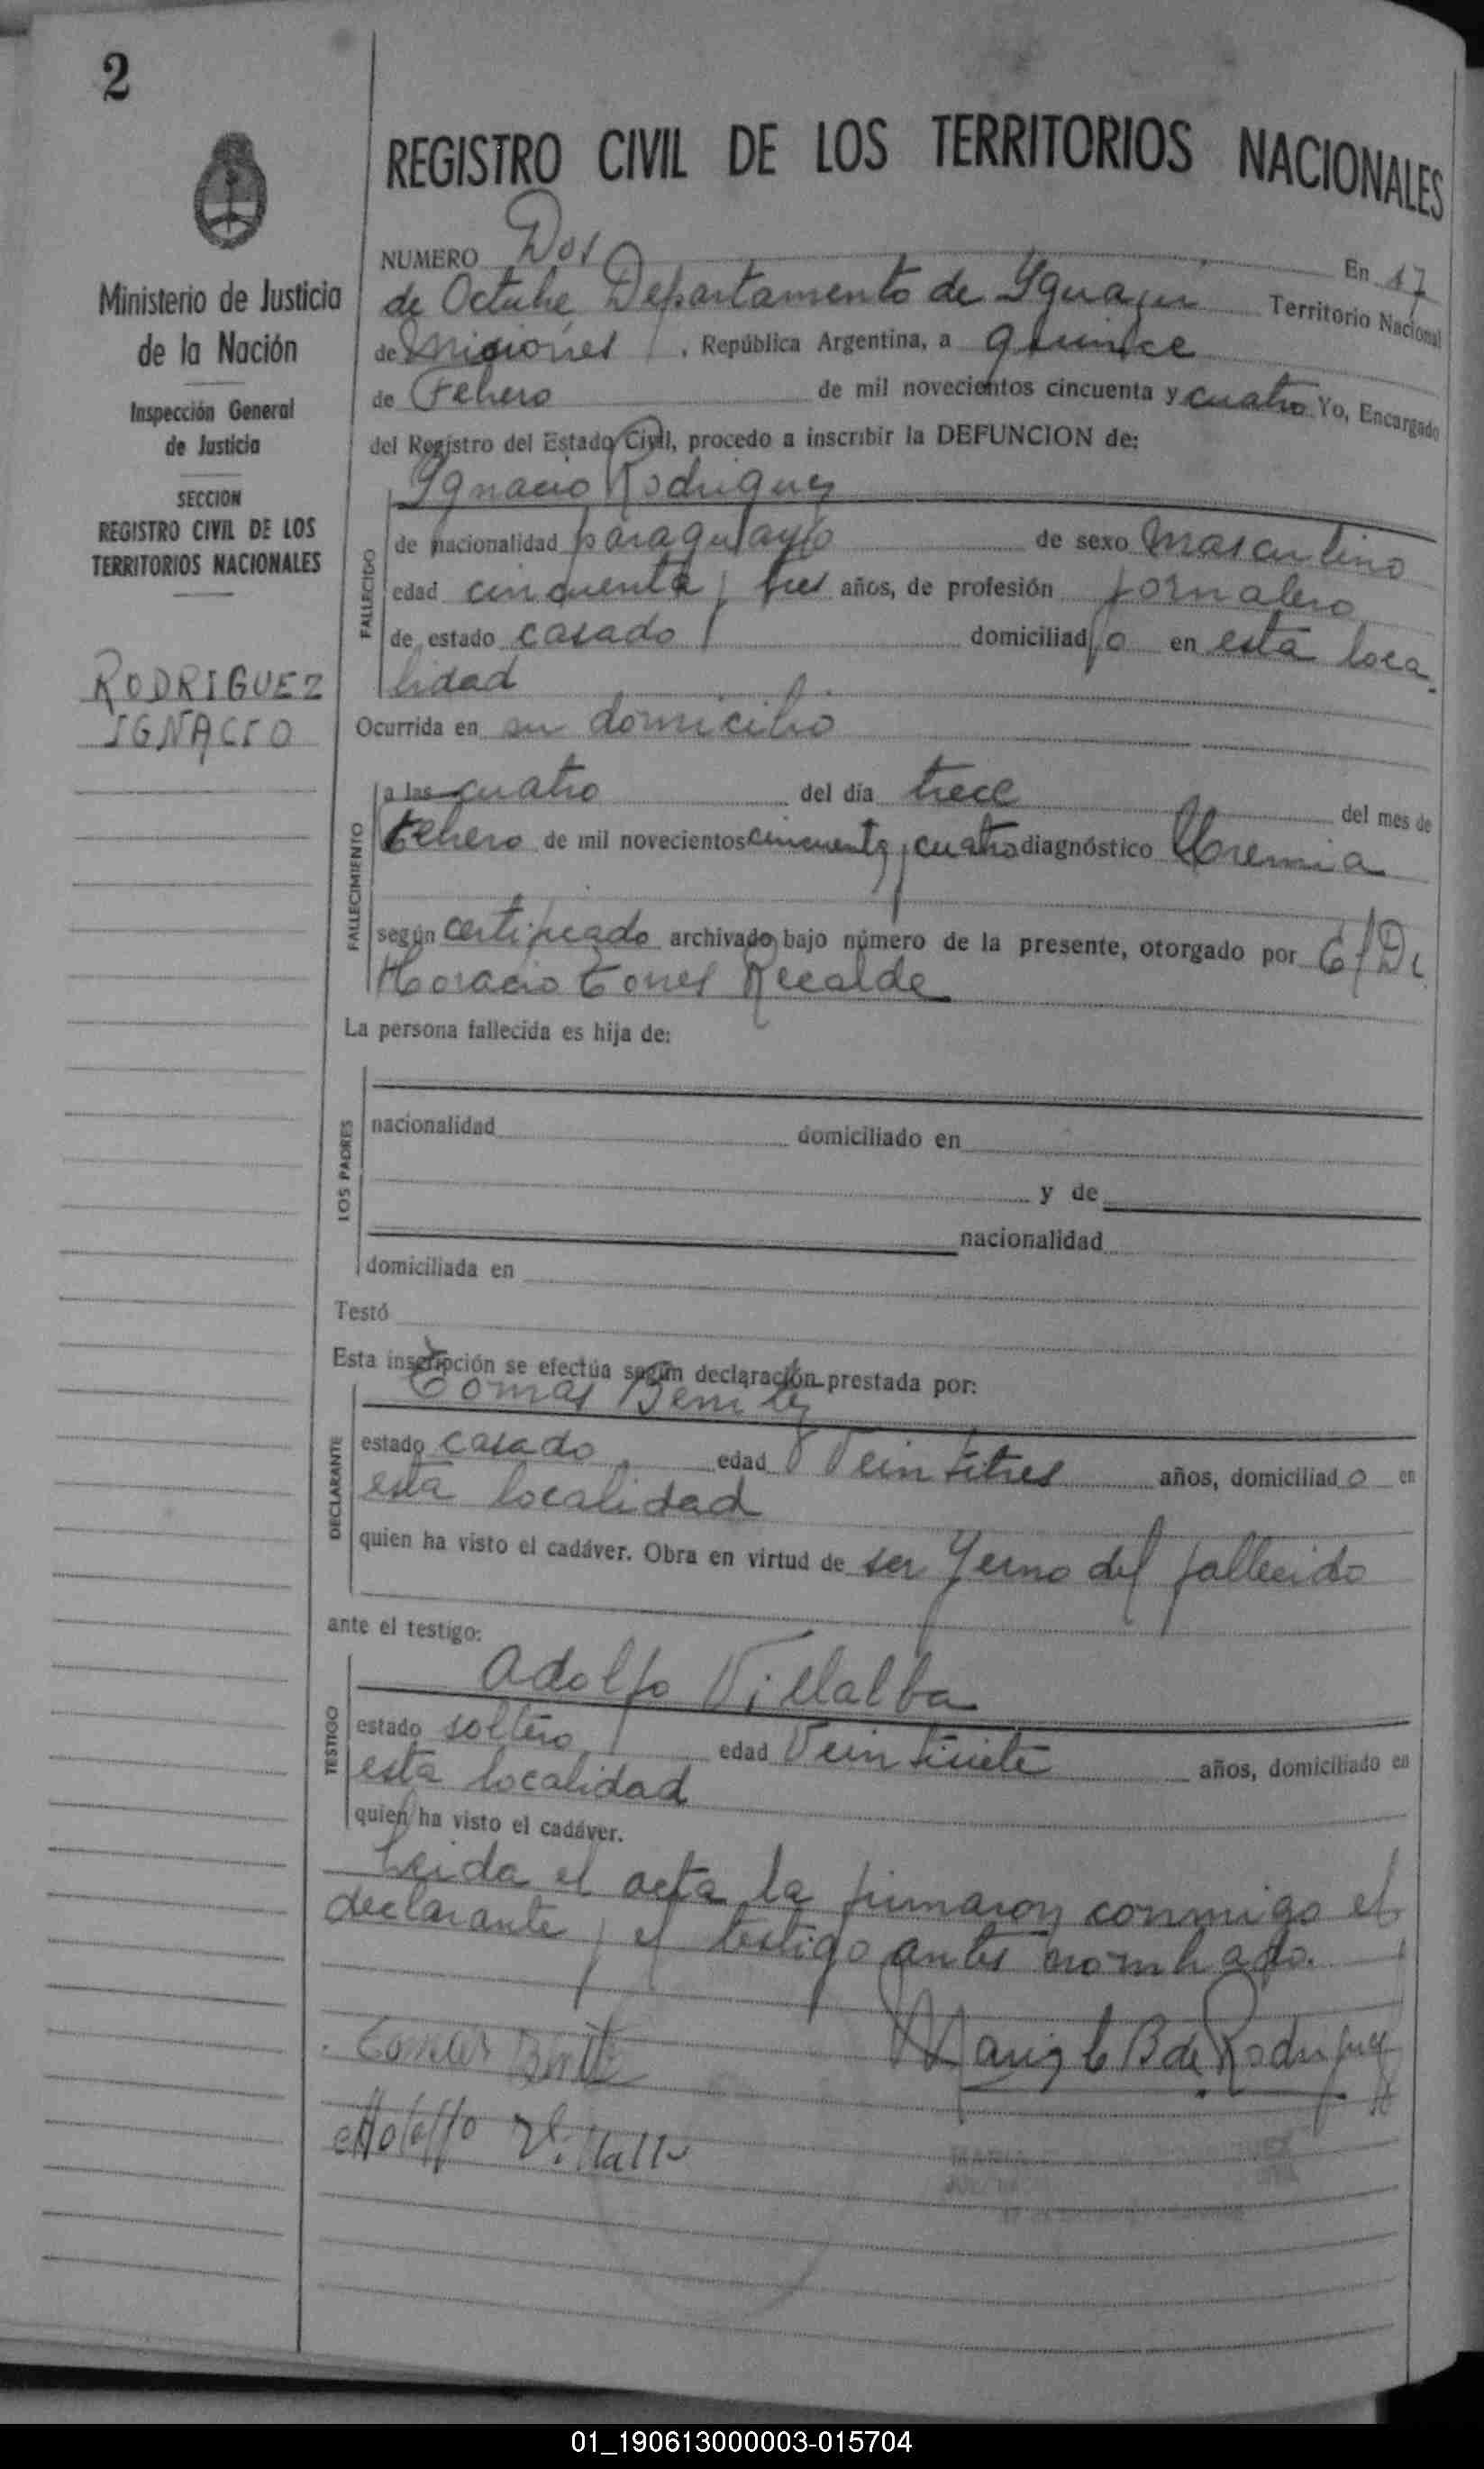 2
REGISTRO CIVIL DE LOS TERRITORIOS NACIONALES
Ministerio de Justicia
de la Nación
Inspección General
de Justicia
SECCION
REGISTRO CIVIL DE LOS
TERRITORIOS NACIONALES
RODRIGUEZ
IGNACIO
NUMERO Dos En 17
de Octubre Departamento de Yguazu Territorio Nacional
de Misiones, República Argentina, a quince
de Febrero de mil novecientos cincuenta y cuatro Yo, Encargado
del Registro del Estado Civil, procedo a inscribir la DEFUNCION de:
Ygnacio Rodriguez
FALLECIDO
de nacionalidad paraguayo de sexo masculino
edad cincuenta y tres años, de profesión jornalero
de estado casado domiciliado en esta loca
lidad
Ocurrida en su domicilio
FALLECIMIENTO
a las cuatro del día trece del mes de
febrero de mil novecientos cincuenta y cuatro diagnóstico Uremia
según certificado archivado bajo número de la presente, otorgado por
Horacio Torres Recalde
La persona fallecida es hija de:
LOS PADRES
nacionalidad domiciliado en
y de
nacionalidad
domiciliada en
Testó
Esta inscripción se efectúa según declaración prestada por:
Tomas Benitez
DECLARANTE
estado casado edad Veintitres años, domiciliado en
esta localidad
quien ha visto el cadáver. Obra en virtud de ser Yerno del fallecido
ante el testigo:
Adolfo Villalba
TESTIGO
estado soltero edad Veintisiete años, domiciliado en
esta localidad
quien ha visto el cadáver.
Leida el acta la firmaron conmigo el
declarante y el testigo antes nombrado.
Tomas Benitez
B de Rodriguez
Adolfo Villalba
01_190613000003-015704